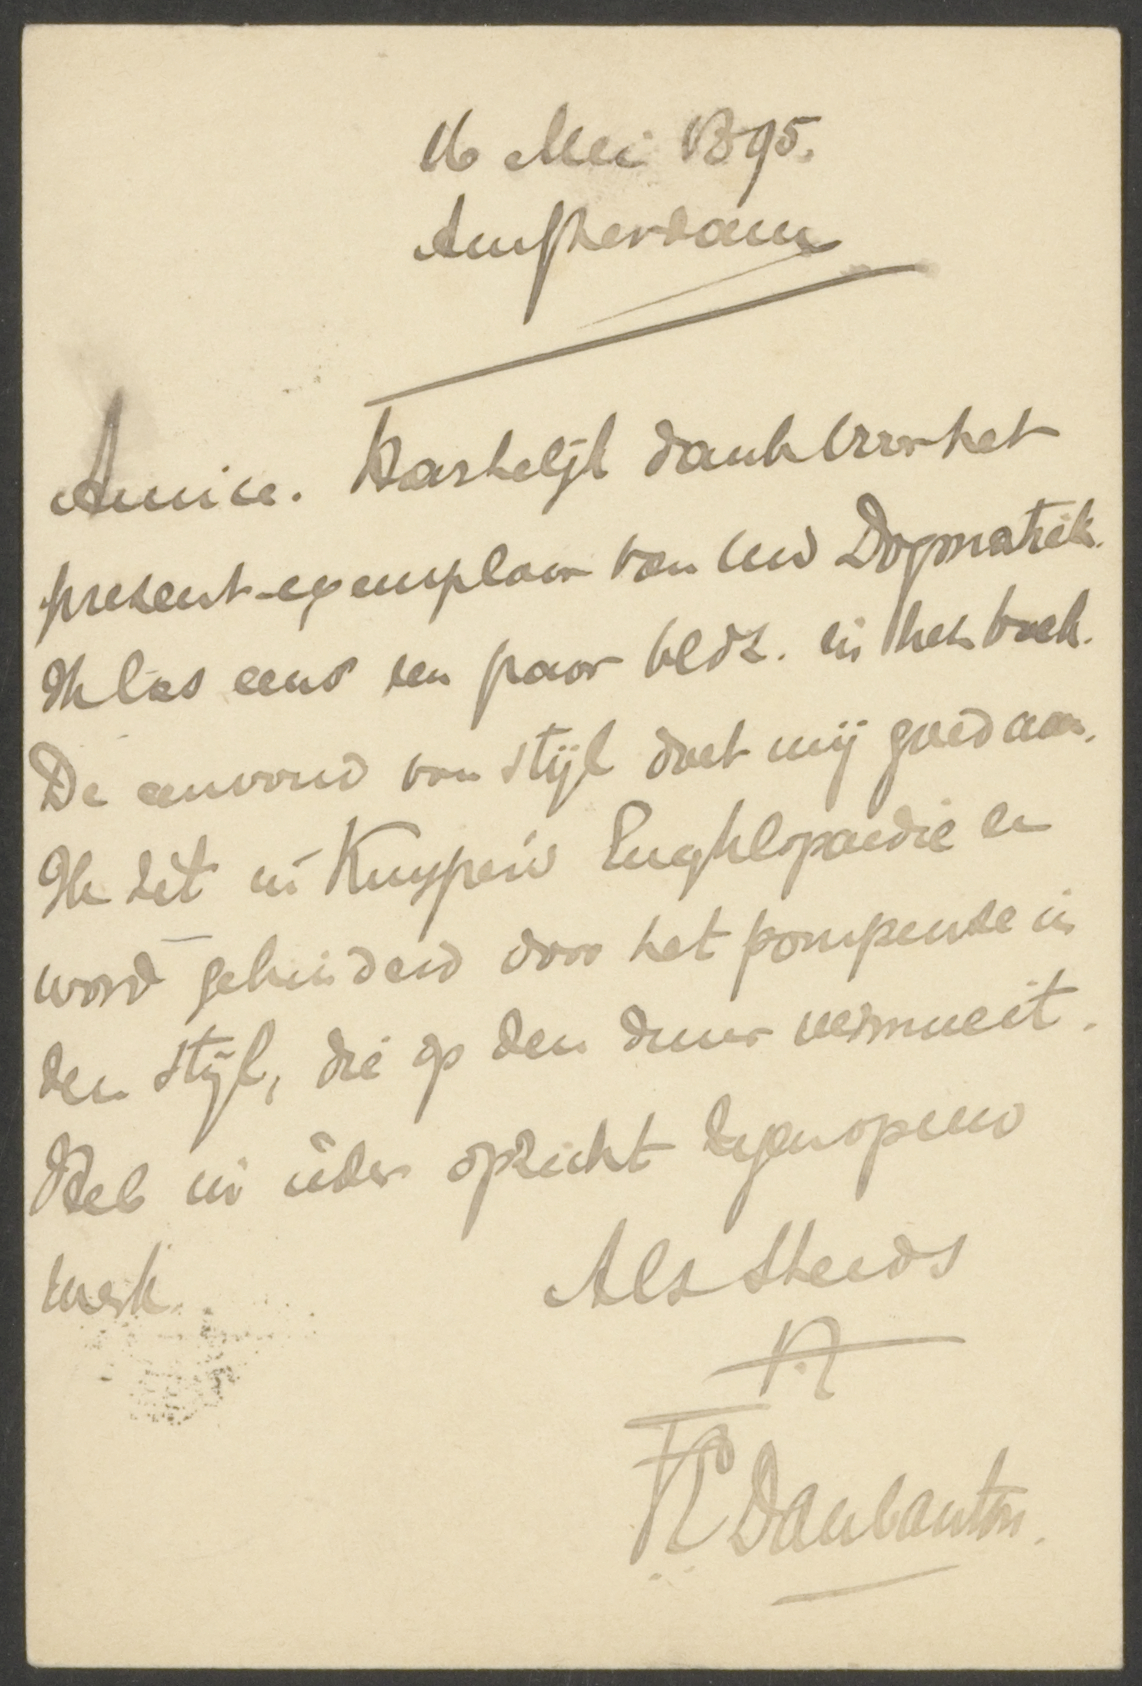 16 Mei 1895.
Amsterdam
Amice. Hartelijk dank voor het
present-exemplaar van uw Dogmatiek.
Ik las eens een paar bldz. in het boek.
De eenvoud van stijl doet mij goed aan.
Ik zit in Kuyper's Encyklopaedie en
word gehinderd door het pompeuse in
den stijl, die op den duur vermoeit.
Heb in ieder opzicht zegen op uw
werk.
Als steeds
t.t.
F E Daubanton.